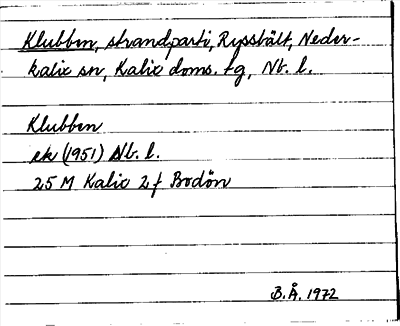 Klubben, strandparti, Ryssbält, Neder-
kalix sn, Kalix doms. tg, Nb. l.
Klubben
ek (1951) Nb. l.
25 M Kalix 2 f Bodön
B.Å. 1972